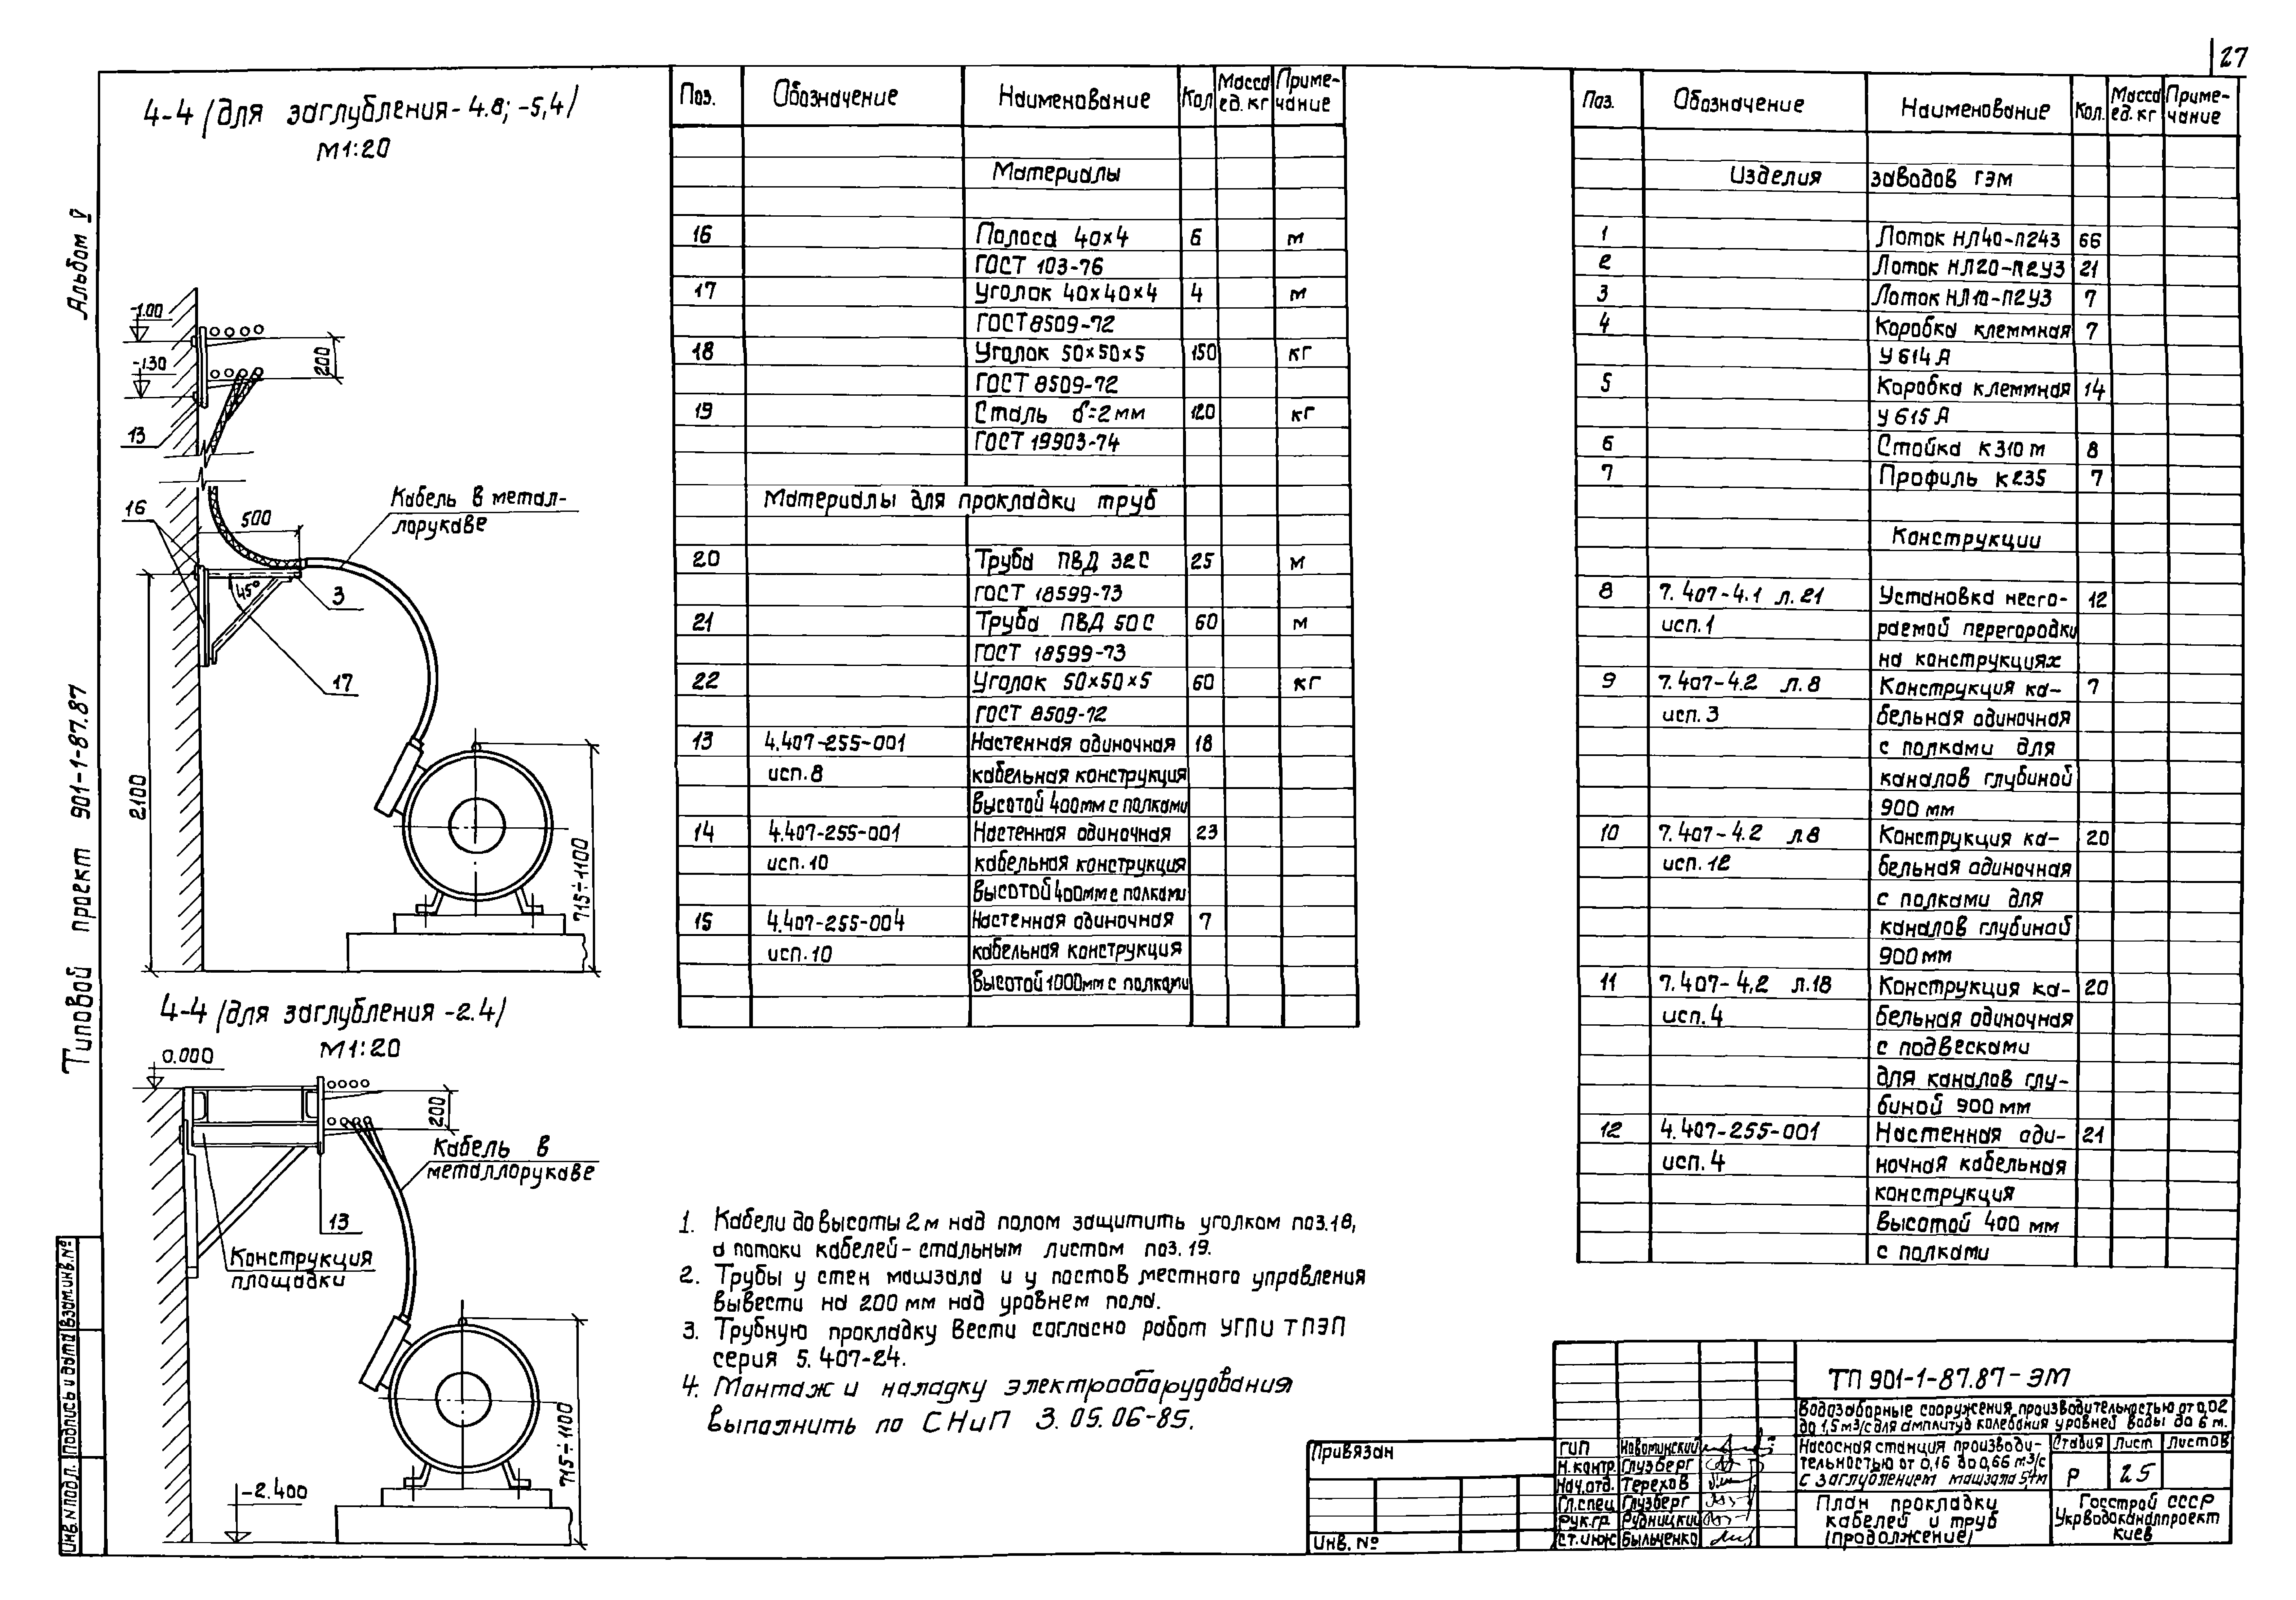 27
Альбом V
Типовой проект 901-1-87.87
Инв.N подл. Подпись и дата Взам.инв.№
4-4 (для заглубления-4.8; -5,4)
М1:20
-1.00
-1.30
200
13
16
500
Кабель в метал-
лорукаве
45°
3
17
2100
715÷1100
4-4 (для заглубления -2.4)
М1:20
0.000
200
Кабель в
металлорукаве
13
Конструкция
площадки
-2.400
715÷1100
Поз. Обозначение Наименование Кол Масса ед.кг Приме-чание
Материалы
16 Полоса 40х4 6 м
ГОСТ 103-76
17 Уголок 40х40х4 4 м
ГОСТ 8509-72
18 Уголок 50х50х5 150 кг
ГОСТ 8509-72
19 Сталь δ=2мм 120 кг
ГОСТ 19903-74
Материалы для прокладки труб
20 Труба ПВД 32С 25 м
ГОСТ 18599-73
21 Труба ПВД 50С 60 м
ГОСТ 18599-73
22 Уголок 50х50х5 60 кг
ГОСТ 8509-72
13 4.407-255-001 Настенная одиночная 18
исп.8 кабельная конструкция
высотой 400мм с полками
14 4.407-255-001 Настенная одиночная 23
исп.10 кабельная конструкция
высотой 400мм с полками
15 4.407-255-004 Настенная одиночная 7
исп.10 кабельная конструкция
высотой 1000мм с полками
Поз. Обозначение Наименование Кол. Масса ед.кг Приме-чание
Изделия заводов ГЭМ
1 Лоток НЛ40-П2У3 66
2 Лоток НЛ20-П2У3 21
3 Лоток НЛ10-П2У3 7
4 Коробка клеммная 7
У614А
5 Коробка клеммная 14
У615А
6 Стойка К310м 8
7 Профиль К235 7
Конструкции
8 7.407-4.1 л.21 Установка несго- 12
исп.1 раемой перегородки
на конструкциях
9 7.407-4.2 л.8 Конструкция ка- 7
исп.3 бельная одиночная
с полками для
каналов глубиной
900 мм
10 7.407-4.2 л.8 Конструкция ка- 20
исп.12 бельная одиночная
с полками для
каналов глубиной
900мм
11 7.407-4.2 л.18 Конструкция ка- 20
исп.4 бельная одиночная
с подвесками
для каналов глу-
биной 900 мм
12 4.407-255-001 Настенная оди- 21
исп.4 ночная кабельная
конструкция
высотой 400 мм
с полками
1. Кабели до высоты 2м над полом защитить уголком поз.18,
а потоки кабелей-стальным листом поз.19.
2. Трубы у стен машзала и у постов местного управления
вывести на 200 мм над уровнем пола.
3. Трубную прокладку вести согласно работ УГПИ ТПЭП
серия 5.407-24.
4. Монтаж и наладку электрооборудования
выполнить по СНиП 3.05.06-85.
Привязан
Инв. №
ГИП Новоминский
Н.контр. Глузберг
Нач.отд. Терехов
Гл.спец Глузберг
Рук.гр. Рудницкий
Ст.инж Быльченко
ТП 901-1-87.87-ЭМ
Водозаборные сооружения производительностью от 0,02
до 1,5м³/с для амплитуд колебания уровней воды до 6 м.
Насосная станция производи-
тельностью от 0,16 до 0,66 м³/с
с заглублением машзала 5,4м
Стадия Лист Листов
Р 25
План прокладки
кабелей и труб
(продолжение)
Госстрой СССР
Укрводоканалпроект
Киев